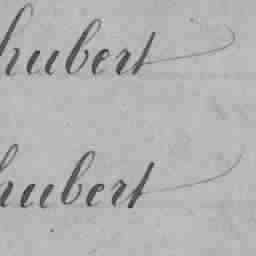 hubert
hubert